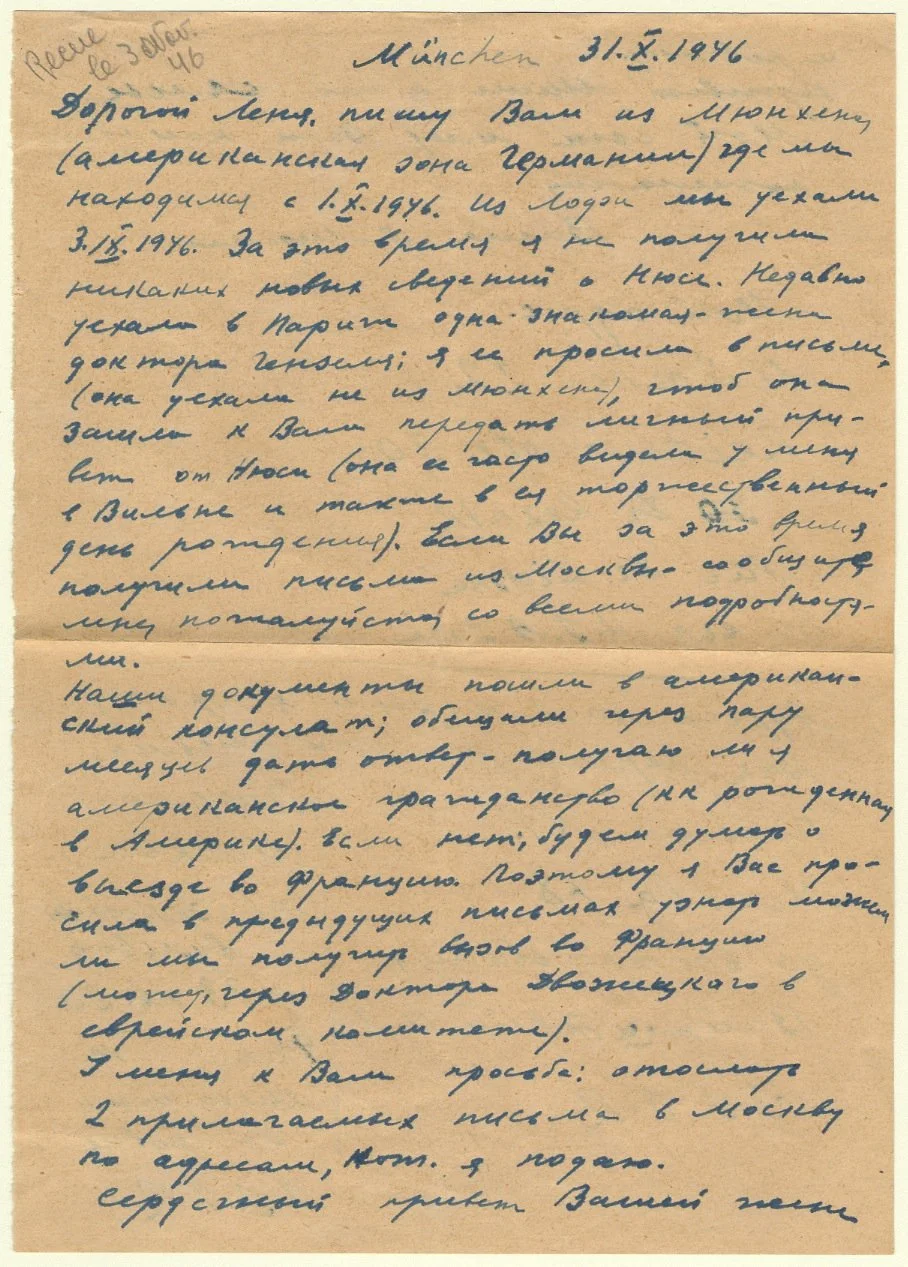 Recue
le 3 Nov.
46
München 31.X.1946
Дорогой Леня, пишу Вам из Мюнхена
(американская зона Германии) где мы
находимся с 1.X.1946. Из Лодзи мы уехали
3.IX.1946. За это время я не получила
никаких новых сведений о Нюсе. Недавно
уехала в Париж одна знакомая - жена
доктора Гензеля; я ее просила в письме,
(она уехала не из Мюнхена), чтоб она
зашла к Вам передать личный при-
вет от Нюси (она ее часто видела у меня
в Вильне и также в ея торжественный
день рождения). Если Вы за это время
получили письма из Москвы - сообщите
мне, пожалуйста, со всеми подробностя-
ми.
Наши документы пошли в американ-
ский консулат; обещали через пару
месяцев дать ответ - получаю ли я
американское гражданство (кк рожденная
в Америке). Если нет, будем думать о
выезде во Францию. Поэтому я Вас про-
сила в предыдущих письмах узнать можем
ли мы получить вызов во Францию
(может, через Доктора Двожецкого в
еврейском комитете).
У меня к Вам просьба: отослать
2 прилагаемых письма в Москву
по адресам, кот. я подаю.
Сердечный привет Вашей жене